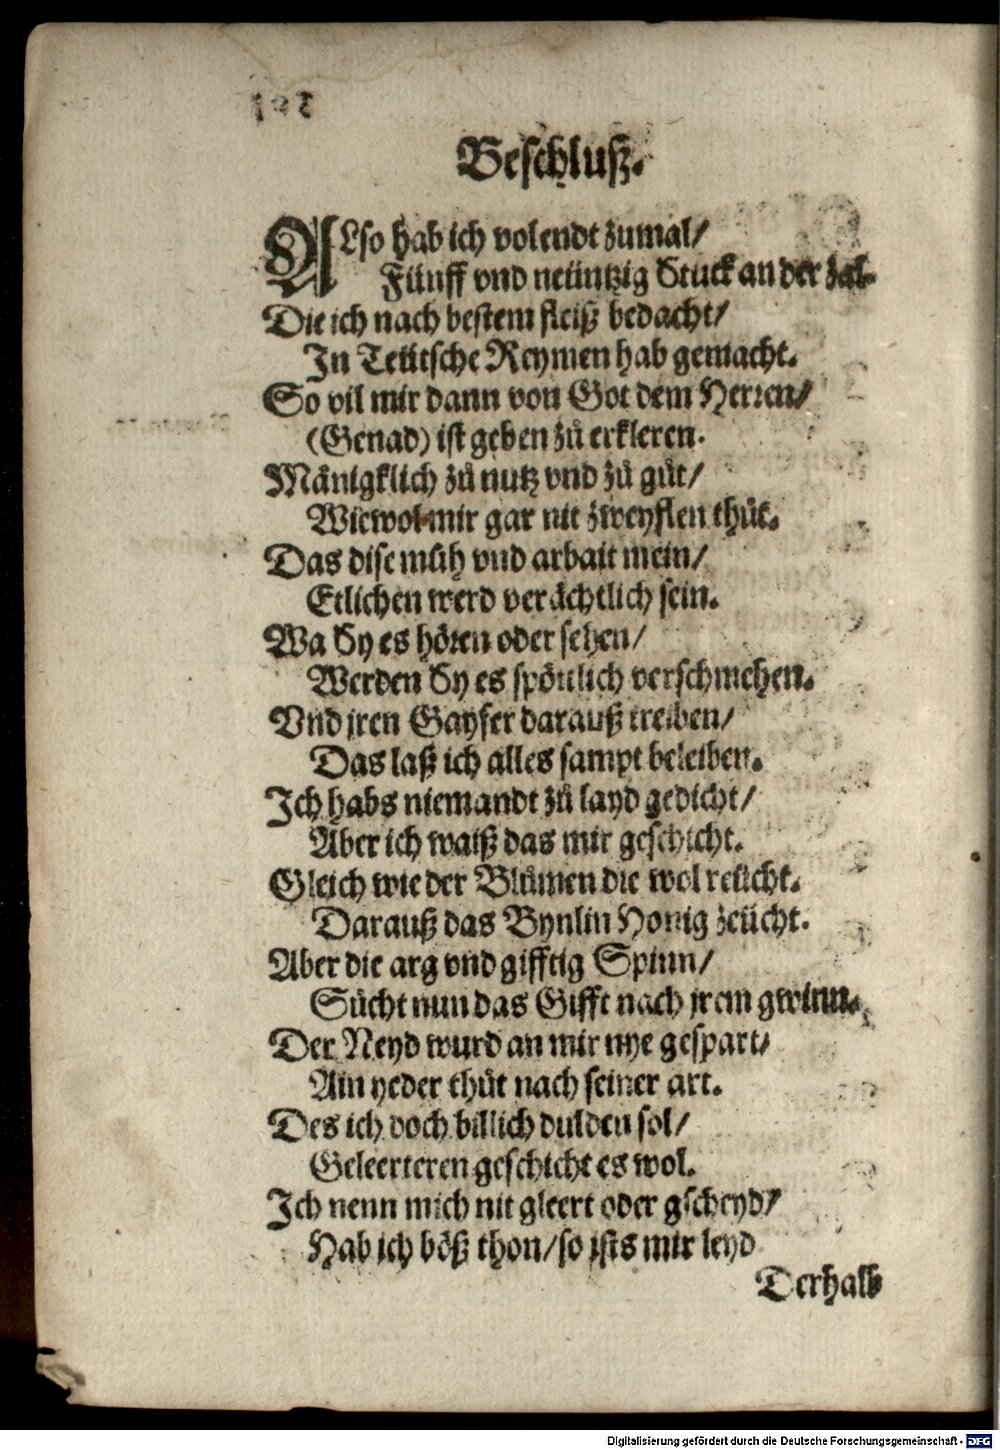 Beschluß.
ALso hab ich volendt zumal/
Fünff vnd neüntzig Stuck an der zal.
Die ich nach bestem fleiß bedacht/
In Teütsche Reymen hab gemacht.
So vil mir dann von Got dem Herren/
(Genad) ist geben zů erkleren.
Mänigklich zů nutz vnd zů gůt/
Wiewol mir gar nit zweyflen thůt.
Das dise můh vnd arbait mein/
Etlichen werd verächtlich sein.
Wa Sy es hören oder sehen/
Werden Sy es spötlich verschmehen.
Vnd jren Gayfer darauß treiben/
Das laß ich alles sampt beleiben.
Ich habs niemandt zů layd gedicht/
Aber ich waiß das mir geschicht.
Gleich wie der Blůmen die wol reücht.
Darauß das Bynlin Honig zeücht.
Aber die arg vnd gifftig Spinn/
Sücht nun das Gifft nach jrem gwinn.
Der Neyd wurd an mir nye gespart/
Ain yeder thůt nach seiner art.
Des ich doch billich dulden sol/
Geleerteren geschicht es wol.
Ich nenn mich nit gleert oder gscheyd/
Hab ich böß thon/so ists mir leyd
Derhalb
Digitalisierung gefördert durch die Deutsche Forschungsgemeinschaft - DFG